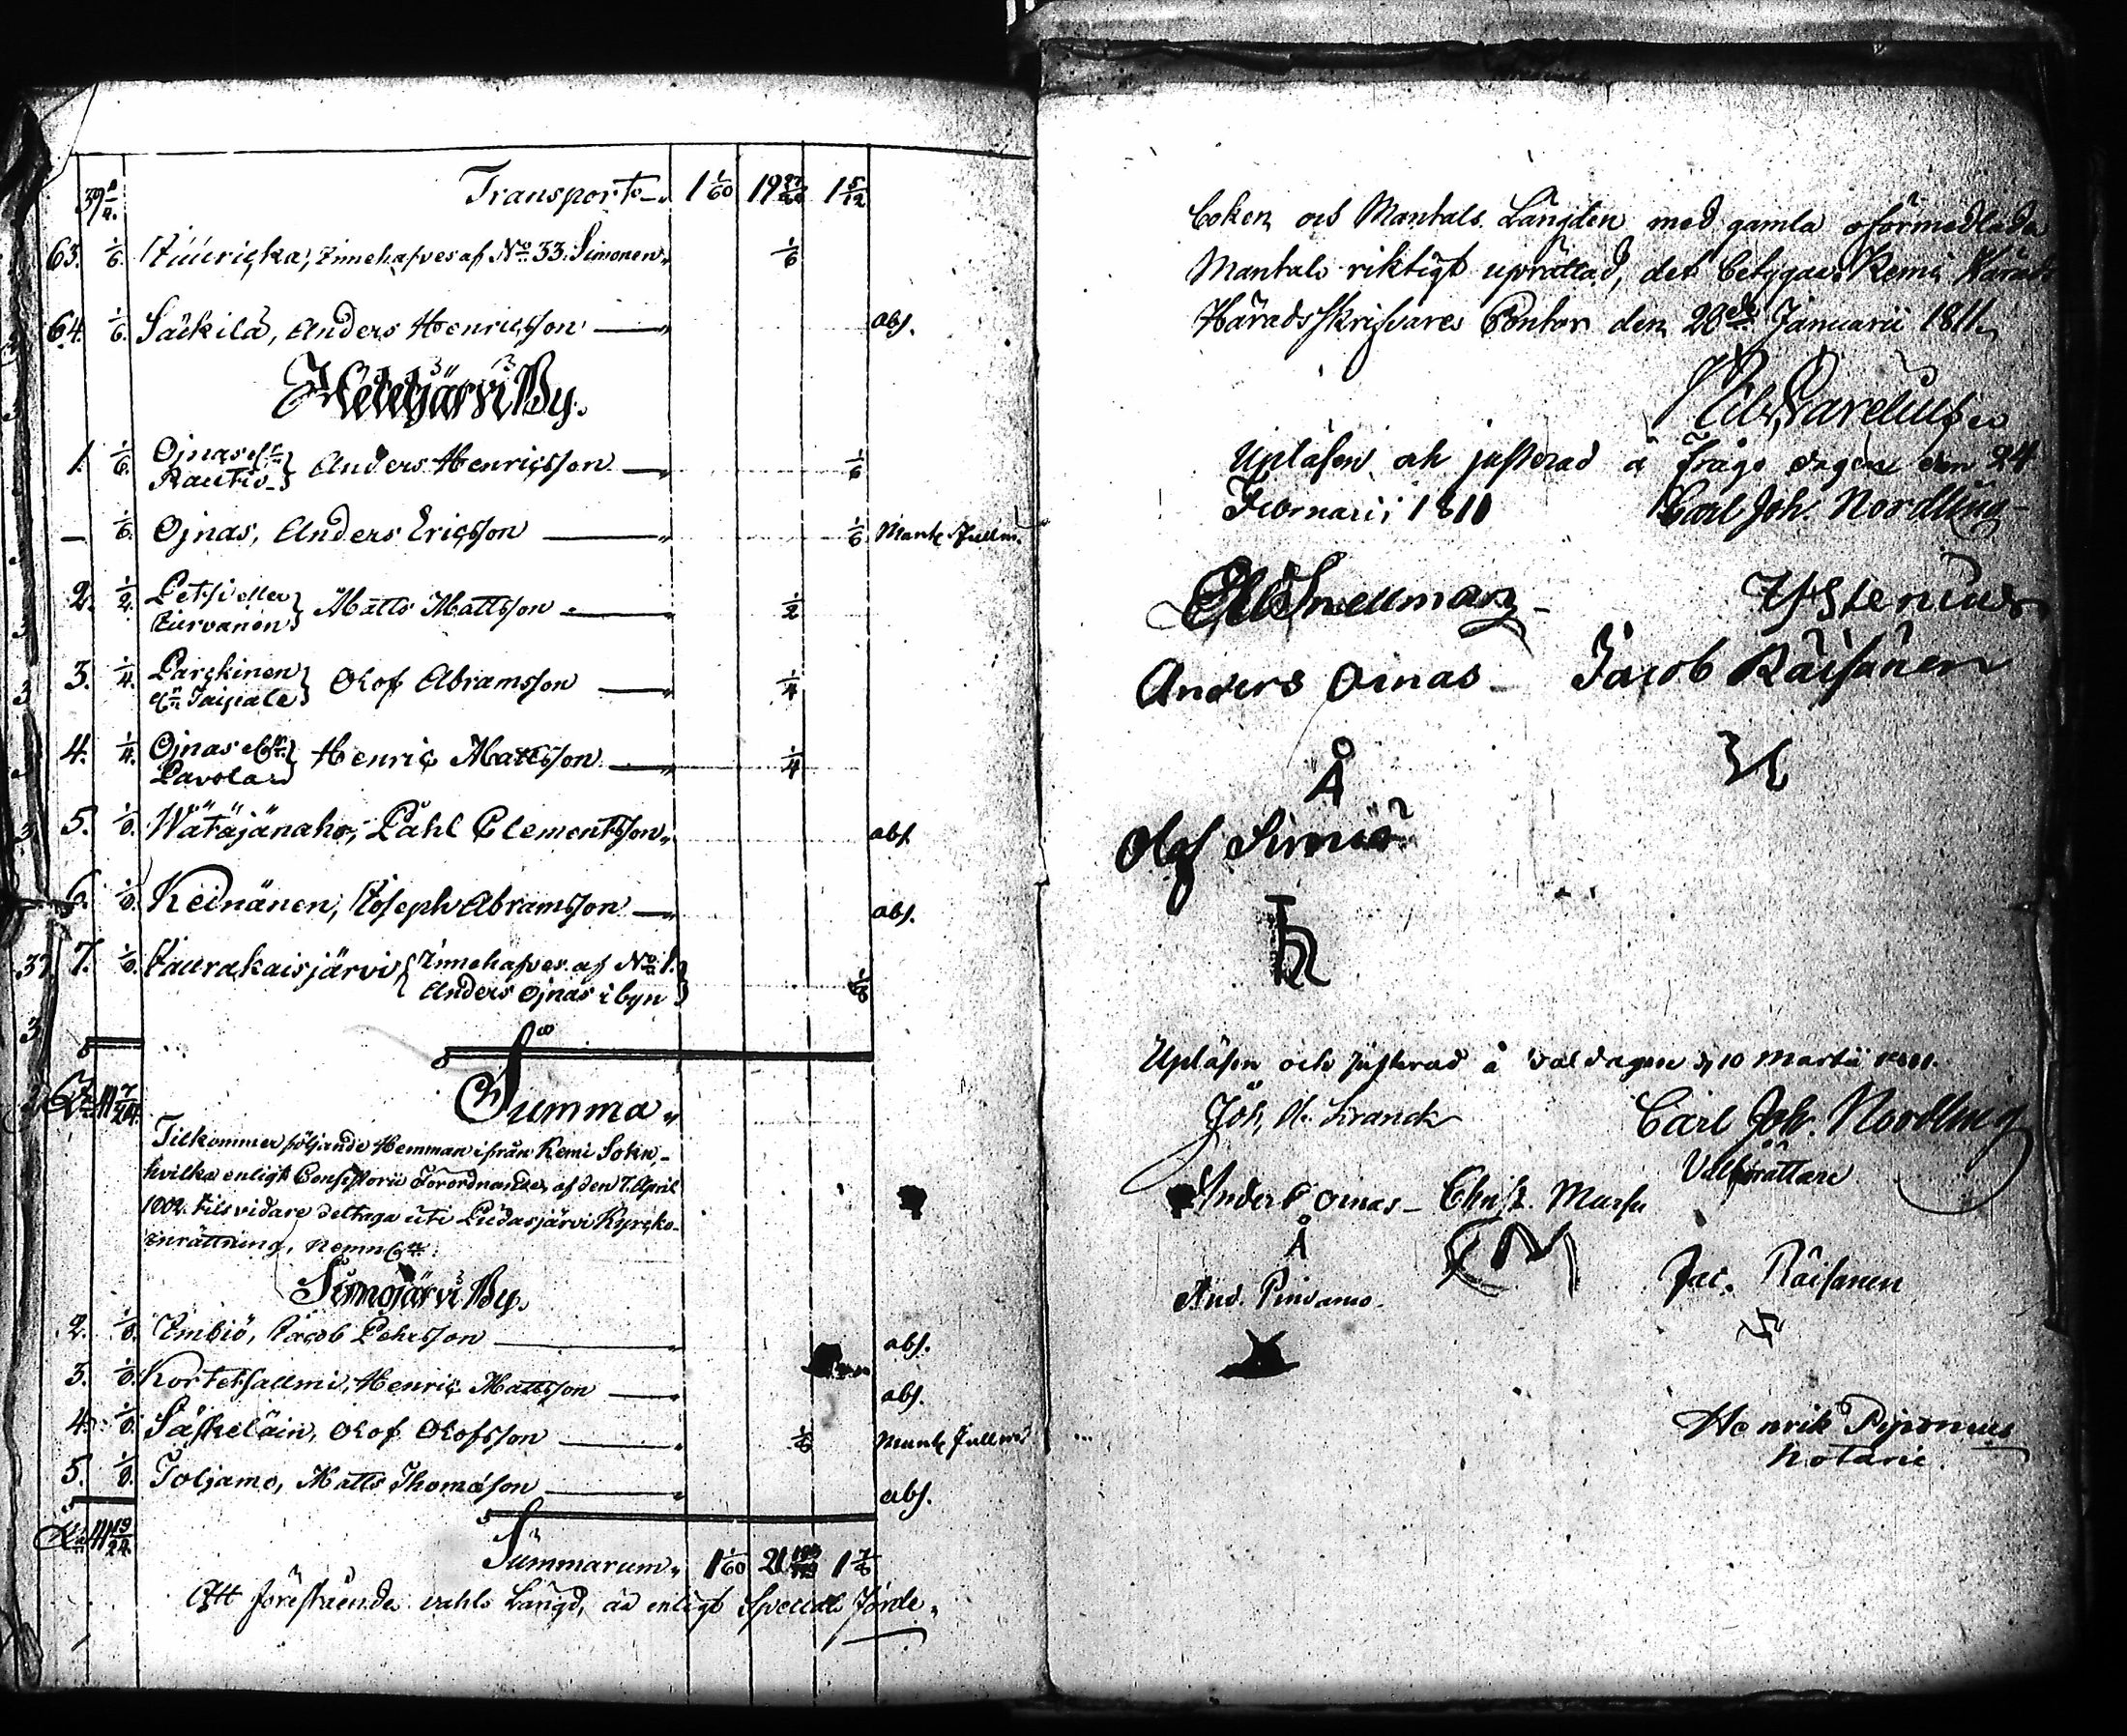 39 Transport 1 1/60 19 1 5/12
63. 1/6. innehafves af No 33. Simonen 1/6
64. 1/6. Säkkilä, Anders Henricsson abs.
Hetejärvi By.
1. 1/6. Ojnas el:r
Rautio Anders Henricsson 1/6
— 1/6. Ojnas, Anders Ericsson 1/6
2. 1/2. Petsi eller
Turvanen Matts Mattsson 1/2
3. 1/4. Parckinen
el:r Taipale Olof Abramsson 1/4
4. 1/4. Ojnas
Pavola Henric Mattsson 1/4
5. 1/8. Wätäjänaho, Påhl Clementsson abs.
6. 1/8. Keinänen, Joseph Abramsson abs.
7. 1/8. Kaurakaisjärvi Innehafves af No 1.
Anders Ojnas i byn 1/8
Summa
Tilkommer följande Hemman ifrån Kemi Sokn,
hvilka enligt Consistorii Förordnande af den 7. April
1802. tils vidare deltaga uti Pudasjärvi Kyrcko-
inrättning, nemn:n
Simojärvi By.
2. 1/8. Jacob Pehrsson abs.
3. 1/8. Kortetsallmi, Henric Mattsson abs.
4. 1/8. Säskeläin, Olof Olofsson 1/8
5. 1/8. Toljamo, Matts Thomasson abs.
Summarum 1 1/60 21 1 7/8
Att förestående vahls Längd, är enligt Special Jorde-
boken och Mantals Längden med gamla oförmedlade
Mantals riktigt uprättad, det betygar. Kemi Härads
Häradsskrifvares Contor den 20de Januarii 1811.
Upläsen och justerad å Fråge dagen den 24
Februarii 1811 Carl Joh. Nordling
Snellman Stenius
Anders Oinas Jacob Räisänen
Å
Olof Simiö
Upläsen och justerad å Valdagen d 10 Martii 1811.
Joh. Franck Carl Joh. Nordling
Valförättare
Anders Oinas Christ. Mursu
Å
And. Jac. Räisänen
Henrik Piponius
Notarie.